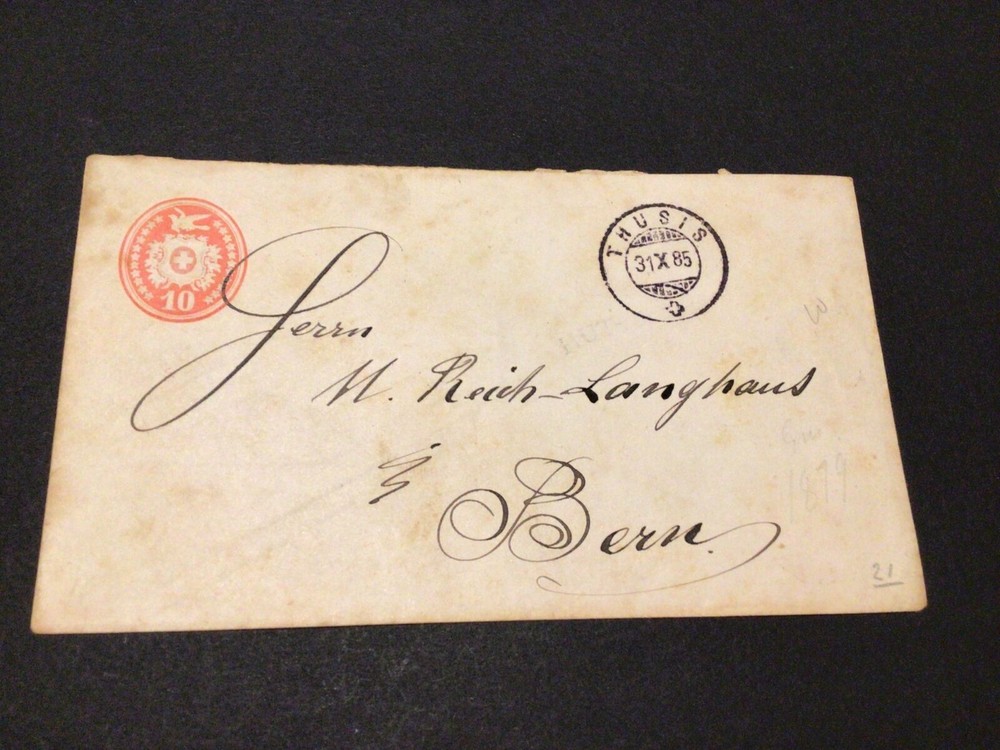 10
THUSIS
31 X 85
Herrn
M. Reich-Langhans
Bern.
W
1879
21